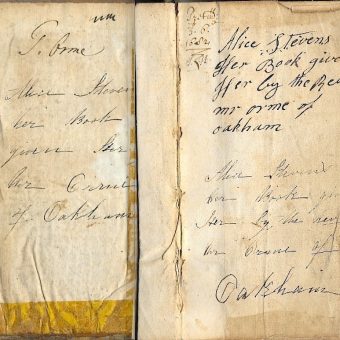 T. Orme
Alice Steven
her Book
given Her
her Orme
of Oakham
Alice Stevens
Her Book give
Her by the Rev
mr orme of
oakham
Alice Stevens
her Book
Her by the rev
mr Orme of
Oakham